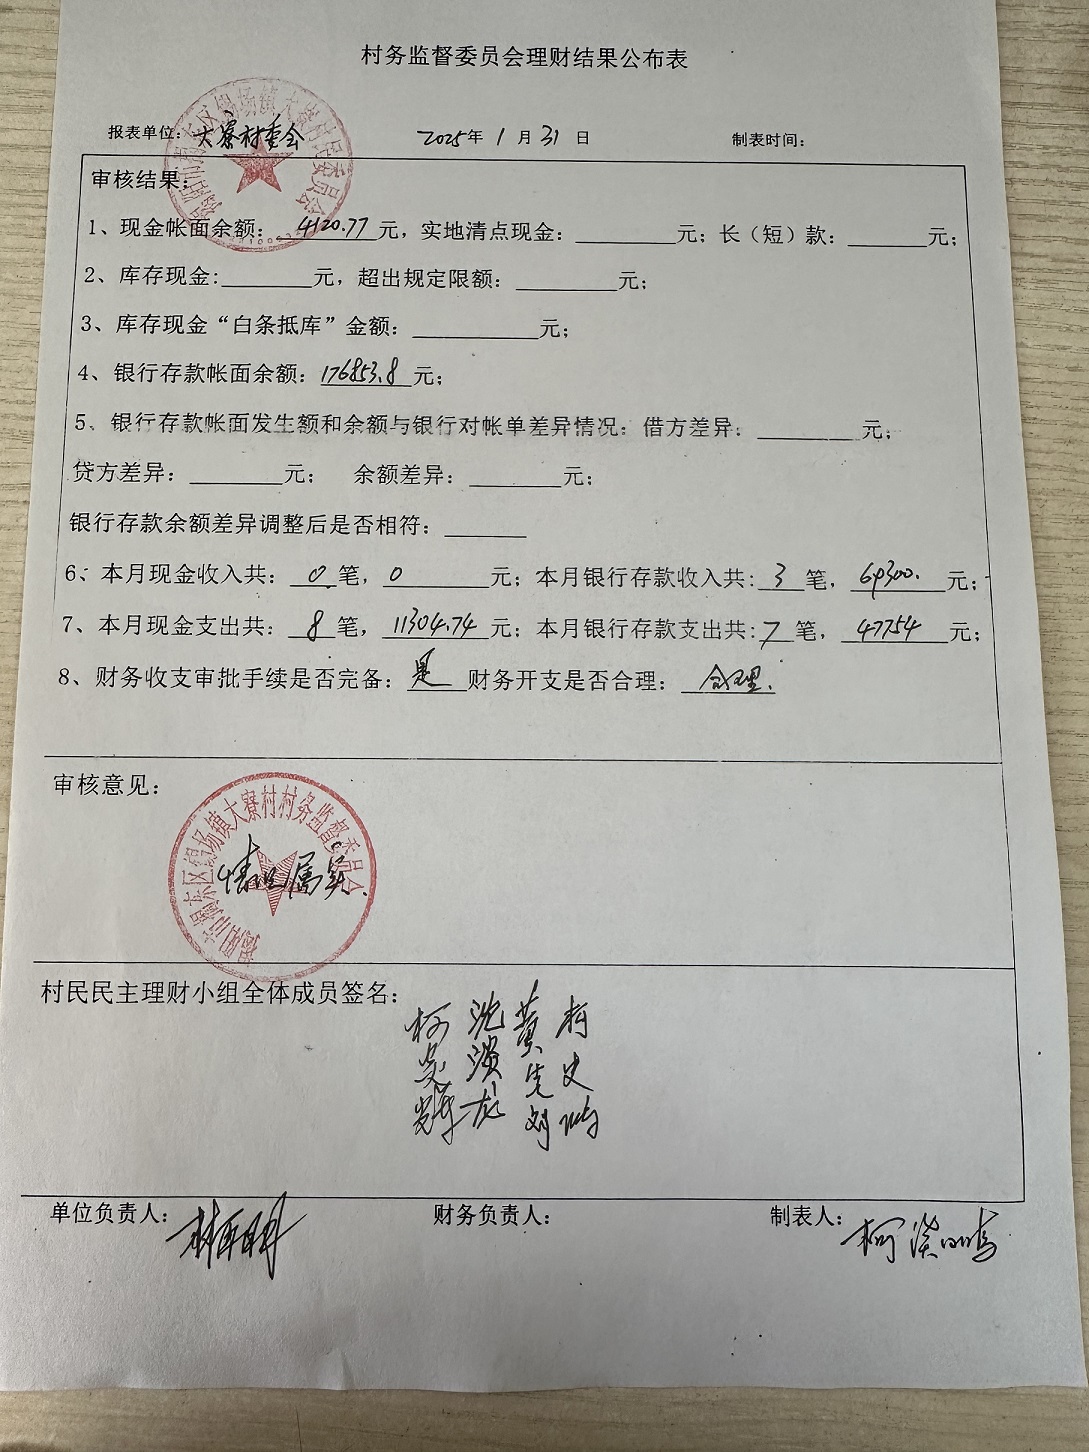 村务监督委员会理财结果公布表
报表单位: 大寮村委会 2025年 1 月 31 日 制表时间:
审核结果:
1、现金帐面余额: 4120.77 元, 实地清点现金: 元; 长（短）款: 元;
2、库存现金: 元, 超出规定限额: 元;
3、库存现金“白条抵库”金额: 元;
4、银行存款帐面余额: 176853.8 元;
5、银行存款帐面发生额和余额与银行对帐单差异情况: 借方差异: 元;
贷方差异: 元; 余额差异: 元;
银行存款余额差异调整后是否相符:
6、本月现金收入共: 0 笔, 0 元; 本月银行存款收入共: 3 笔, 69300. 元;
7、本月现金支出共: 8 笔, 11304.74 元; 本月银行存款支出共: 7 笔, 47754 元;
8、财务收支审批手续是否完备: 是 财务开支是否合理: 合理.
审核意见:
揭阳市揭东区锡场镇大寮村村务监督委员会
情况属实.
村民民主理财小组全体成员签名:
单位负责人: 财务负责人: 制表人: